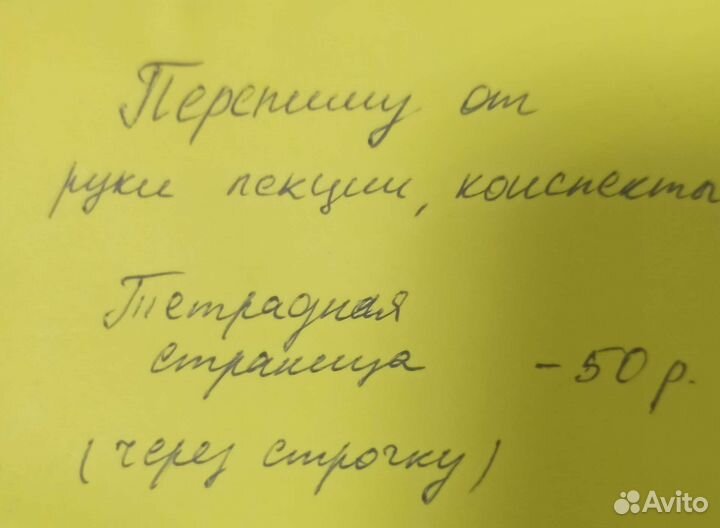 Перепишу от
руки лекции, конспекты
Тетрадная
страница - 50 р.
(через строчку)
Avito